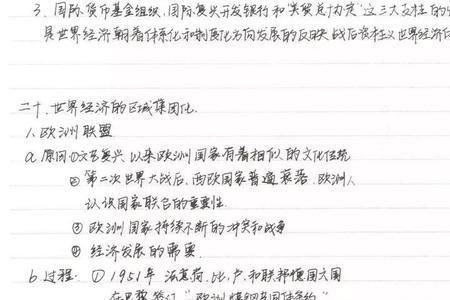 3. 国际货币基金组织、国际复兴开发银行和"关贸总协定"这三大支柱的
是世界经济朝着体系化和制度化方向发展的反映,战后资本主义世界经济
二十、世界经济的区域集团化.
1、欧洲联盟
a.原因①文艺复兴以来欧洲国家有着相似的文化传统
② 第二次世界大战后,西欧国家普遍衰落.欧洲人
认识国家联合的重要性.
③ 欧洲国家持续不断的冲突和战争
④ 经济发展的需要.
b.过程:①1951年 法意荷、比、卢和联邦德国六国
在巴黎签订"欧洲煤钢共同体条约"